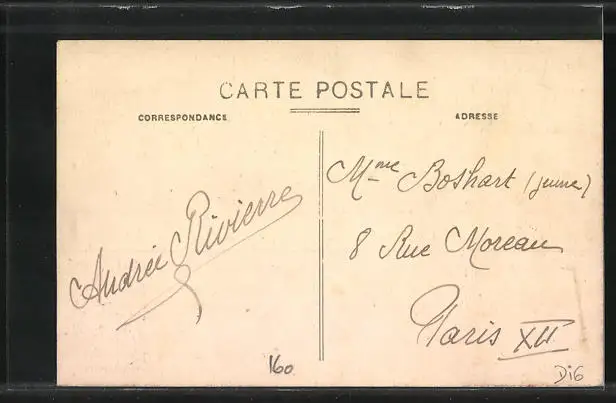 CARTE POSTALE
CORRESPONDANCE
ADRESSE
Andrée Rivierre
Mme Boshart (jeune)
8 Rue Moreau
Paris XII
160
Di6